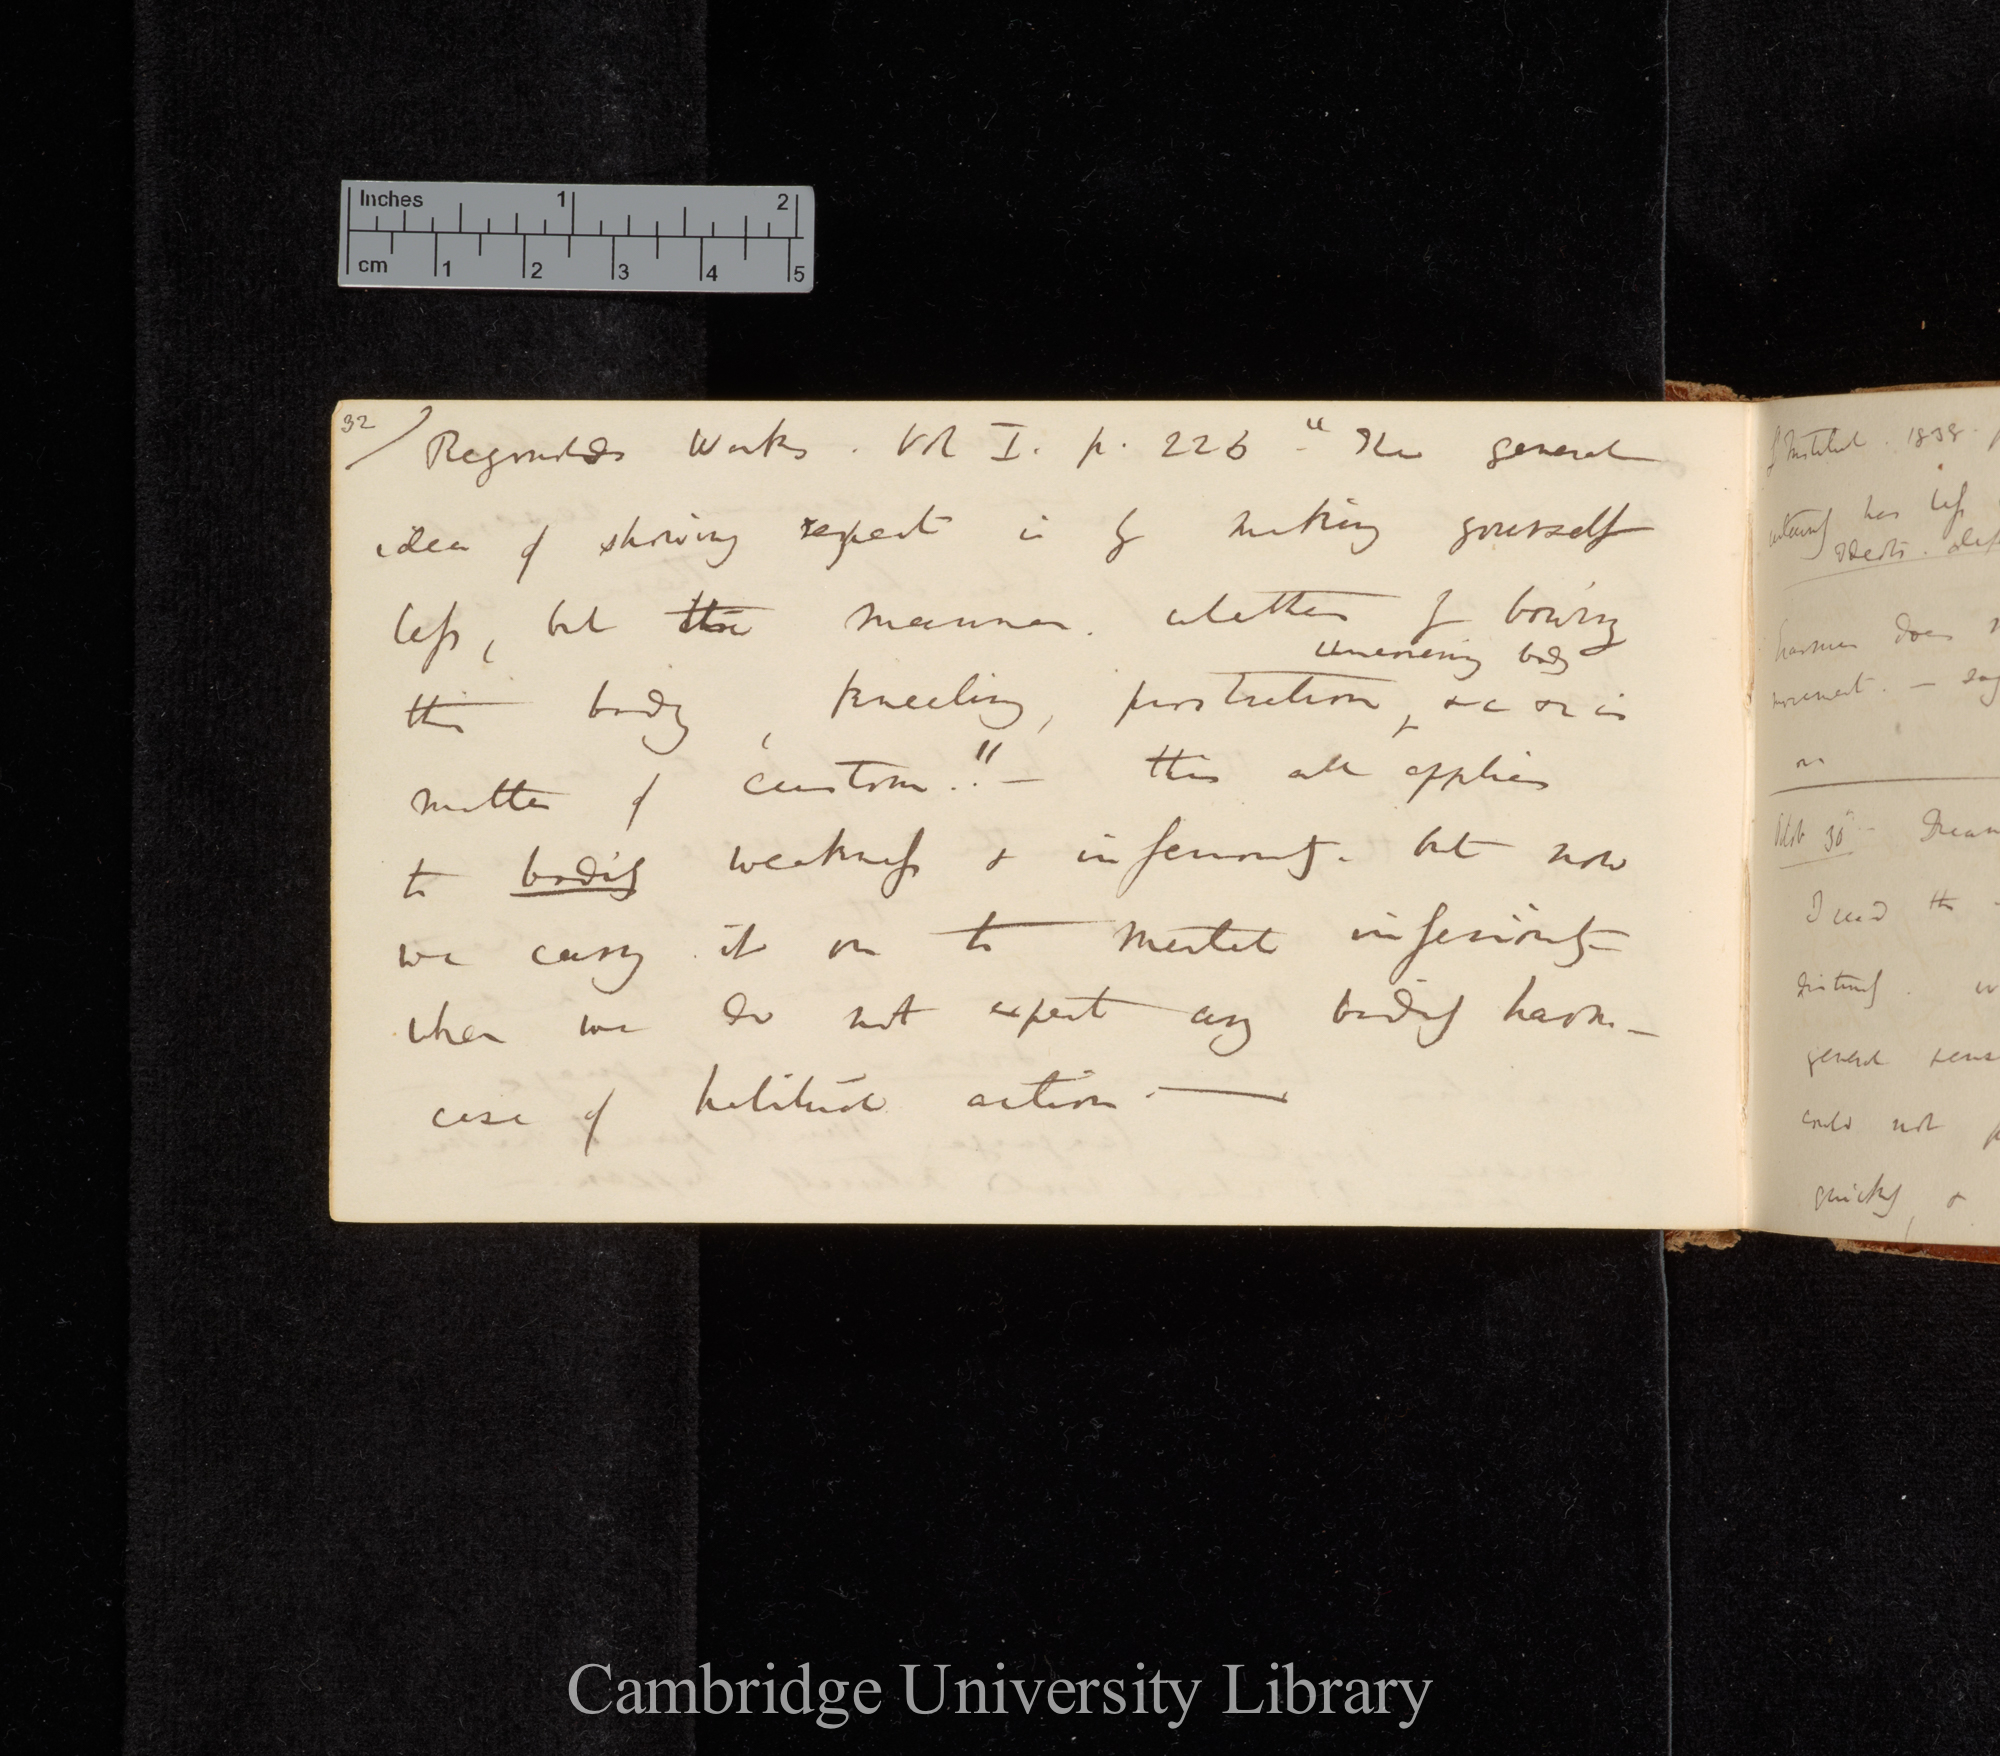 Inches 1 2
cm 1 2 3 4 5
32
Reynolds Works. Vol I. p. 226 - "The general
idea of showing respect is by making yourself
less, but the manner. whether by bowing
uncovering body
the body, kneeling, prostration, &c &c is
matter of custom.."— this all applies
to bodily weakness & inferiority. but now
we carry it on to mental inferiority—
when we do not expect any bodily harm.—
case of habitual action.—
Institut. 1838. p
has less
objects.
does
movement. —
Dream
I read the
general sense
could not
quickly, &
Cambridge University Library